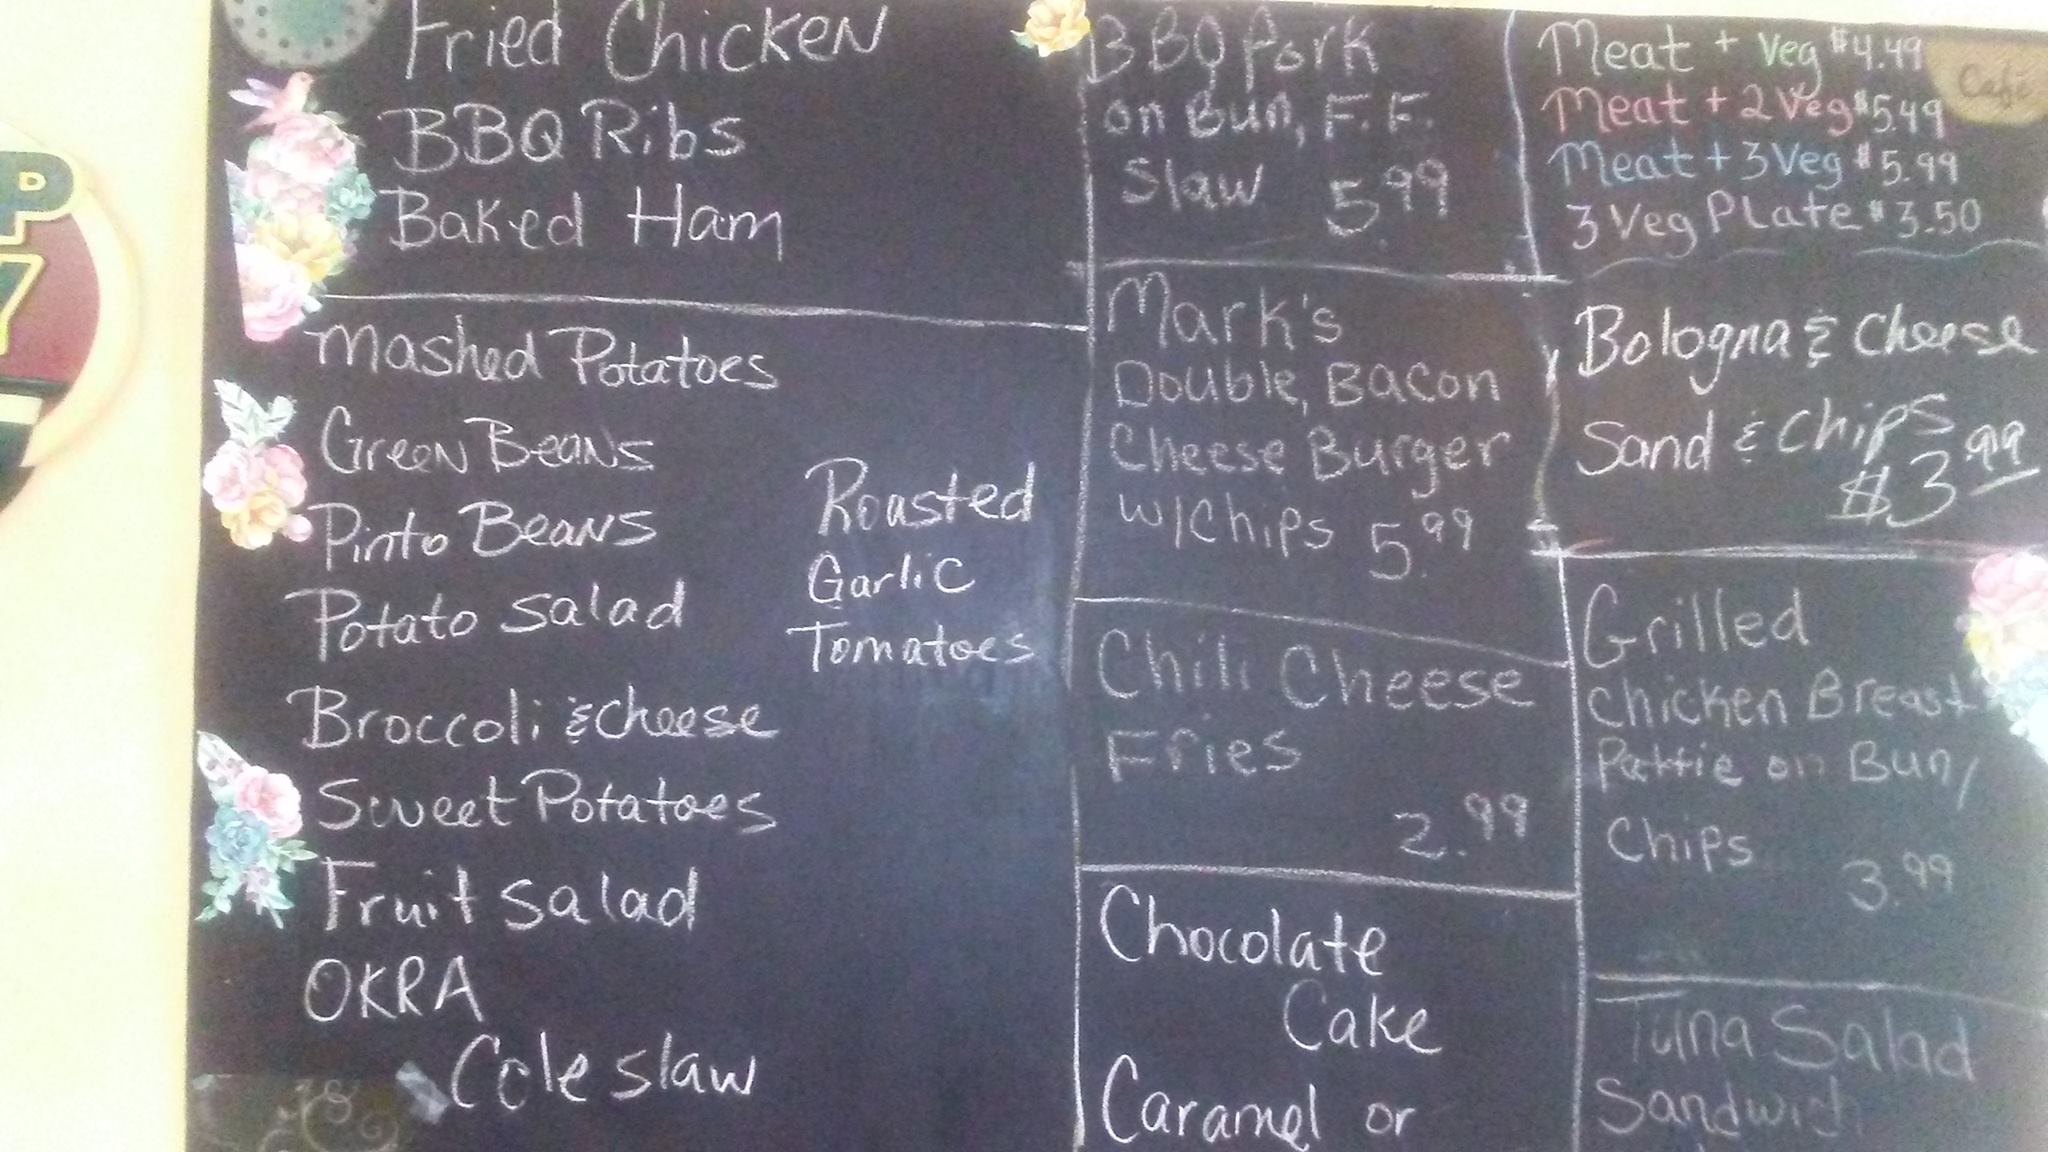 Fried Chicken
BBQ Ribs
Baked Ham
Mashed Potatoes
Green Beans
Pinto Beans
Potato Salad
Broccoli & cheese
Sweet Potatoes
Fruit salad
OKRA
Cole slaw
Roasted
Garlic
Tomatoes
BBQ Pork
on Bun, F.F.
Slaw 5.99
Mark's
Double, Bacon
Cheese Burger
w/Chips 5.99
Chili Cheese
Fries
2.99
Chocolate
Cake
Caramel or
Meat + Veg $4.49
Meat + 2 Veg $5.49
Meat + 3 Veg $5.99
3 Veg Plate $3.50
Café
Bologna & Cheese
Sand & Chips
$3.99
Grilled
Chicken Breast
Pattie on Bun/
Chips
3.99
Tuna Salad
Sandwich
P
7